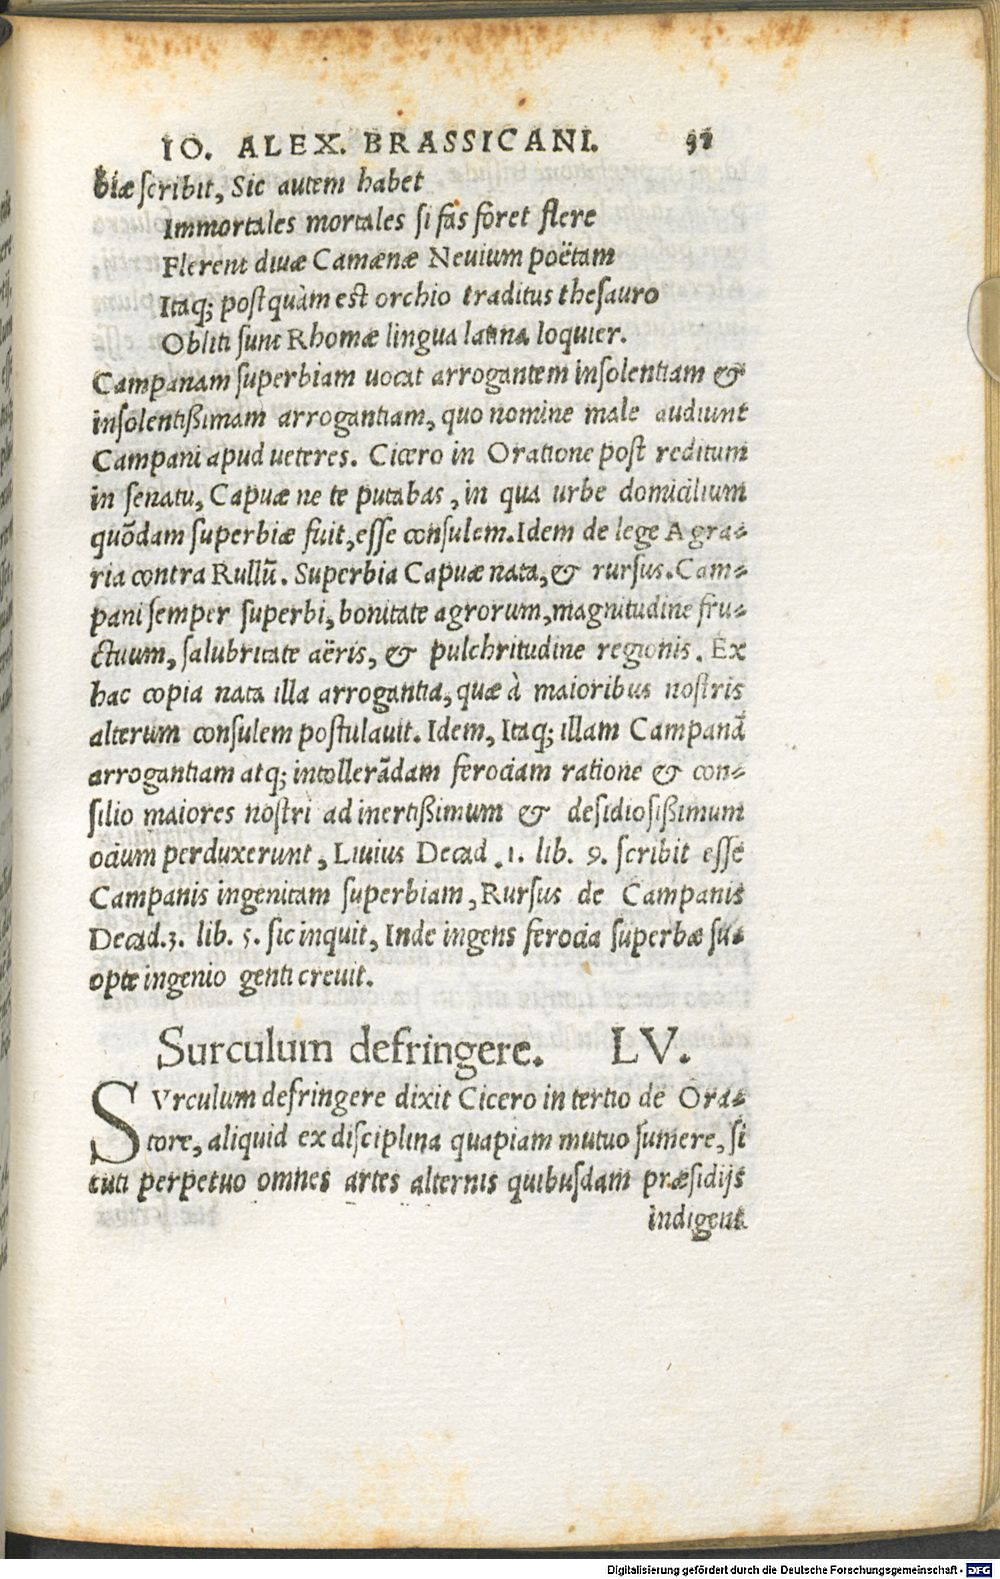 IO. ALEX. BRASSICANI. 
biæ scribit, Sic autem habet
Immortales mortales si fas foret flere
Flerent diuæ Camænæ Neuium poëtam
Itaq; postquàm est orchio traditus thesauro
Obliti sunt Rhomæ lingua latina loquier.
Campanam superbiam uocat arrogantem insolentiam &
insolentißimam arrogantiam, quo nomine male audiunt
Campani apud ueteres. Cicero in Oratione post reditum
in senatu, Capuæ ne te putabas, in qua urbe domicilium
quõdam superbiæ fuit, esse consulem. Idem de lege Agra-
ria contra Rullũ. Superbia Capuæ nata, & rursus. Cam-
pani semper superbi, bonitate agrorum, magnitudine fru-
ctuum, salubritate aëris, & pulchritudine regionis. Ex
hac copia nata illa arrogantia, quæ à maioribus nostris
alterum consulem postulauit. Idem, Itaq; illam Campanã
arrogantiam atq; intollerãdam ferociam ratione & con-
silio maiores nostri ad inertißimum & desidiosißimum
ocium perduxerunt, Liuius Decad .1. lib. 9. scribit esse
Campanis ingenitam superbiam, Rursus de Campanis
Decad.3. lib. 5. sic inquit, Inde ingens ferocia superbæ su-
opte ingenio genti creuit.
Surculum defringere. LV.
SVrculum defringere dixit Cicero in tertio de Ora-
tore, aliquid ex disciplina quapiam mutuo sumere, si
cuti perpetuo omnes artes alternis quibusdam præsidijs
indigent
Digitalisierung gefördert durch die Deutsche Forschungsgemeinschaft - DFG